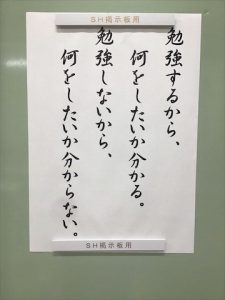 SH掲示板用
勉強するから、
何をしたいか分かる。
勉強しないから、
何をしたいか分からない。
SH掲示板用